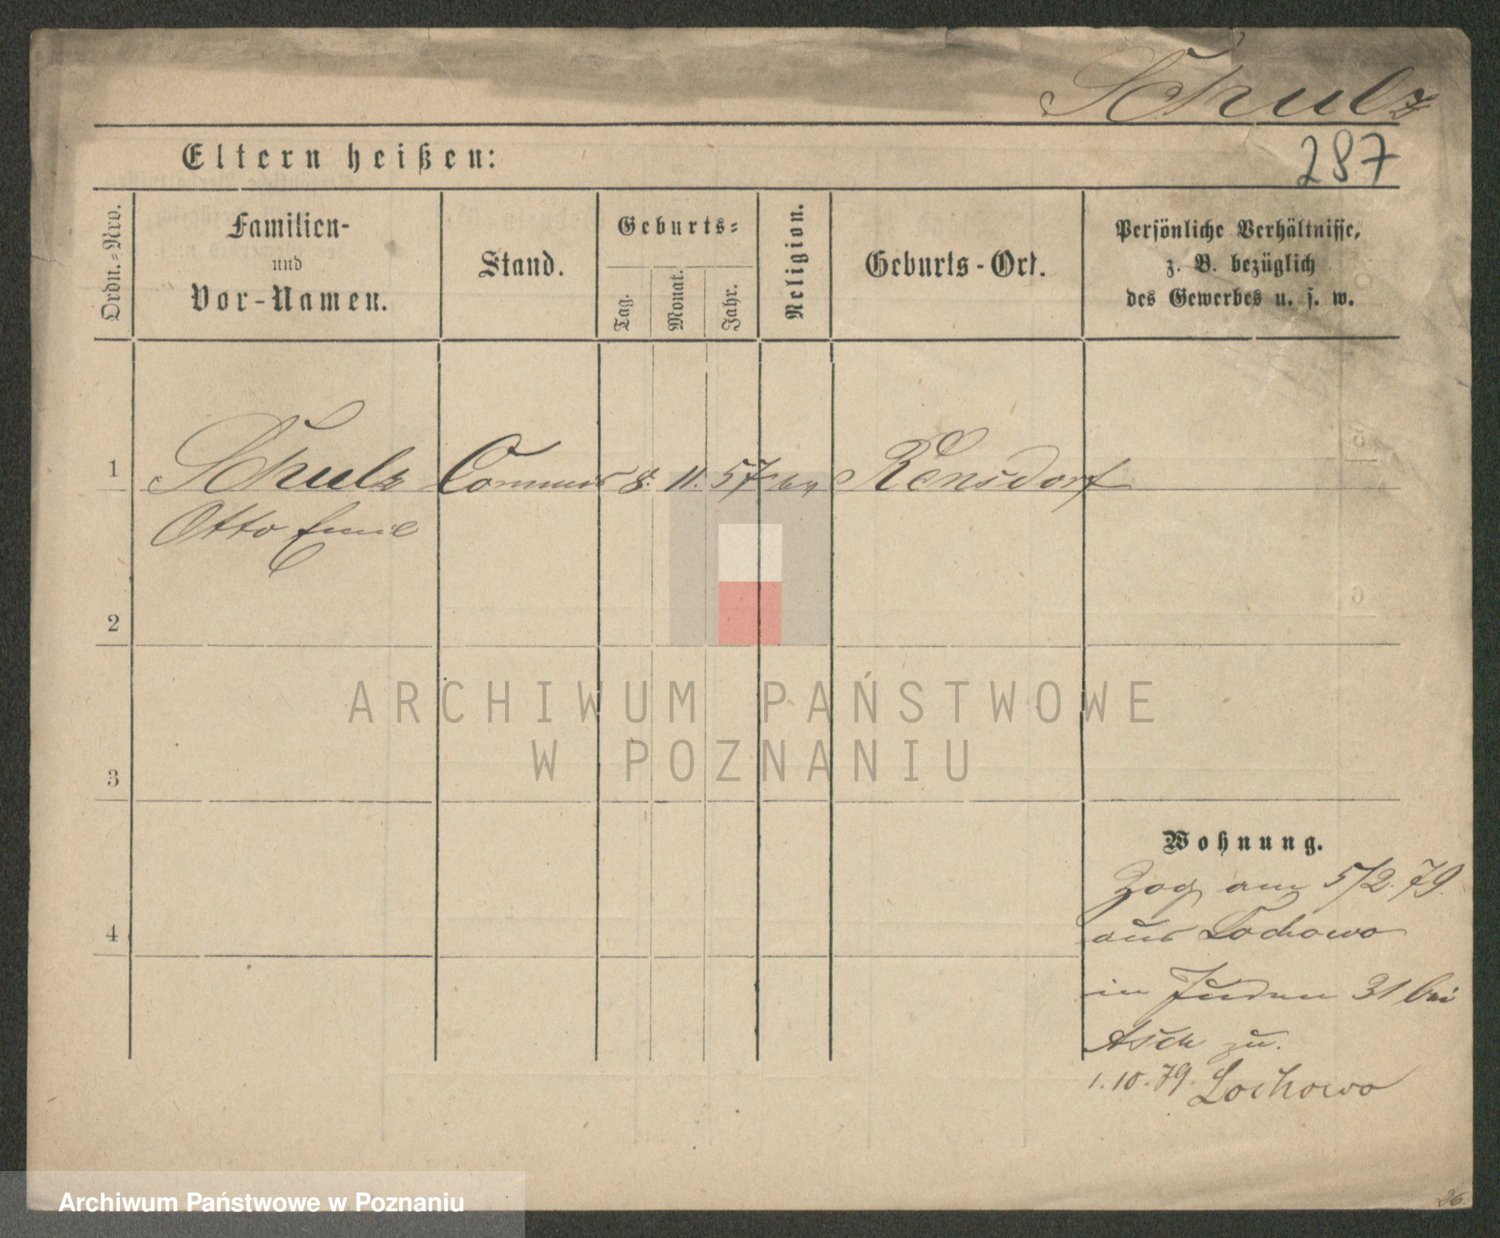 Schulz
Eltern heißen:
287
Ordn.-Nro.
Familien-
und
Vor-Namen.
Stand.
Geburts-
Tag.
Monat.
Jahr.
Religion.
Geburts-Ort.
Persönliche Verhältnisse,
z. B. bezüglich
des Gewerbes u. s. w.
1 Schulz Commis 8. 11. 57 Rensdorf
Otto Emil
2
3
4
ARCHIWUM PAŃSTWOWE
W POZNANIU
Wohnung.
Zog am 5/2. 79.
aus Lochowo
in Juden 31 bei
Asch zu.
1. 10. 79. Lochowo
Archiwum Państwowe w Poznaniu
26.